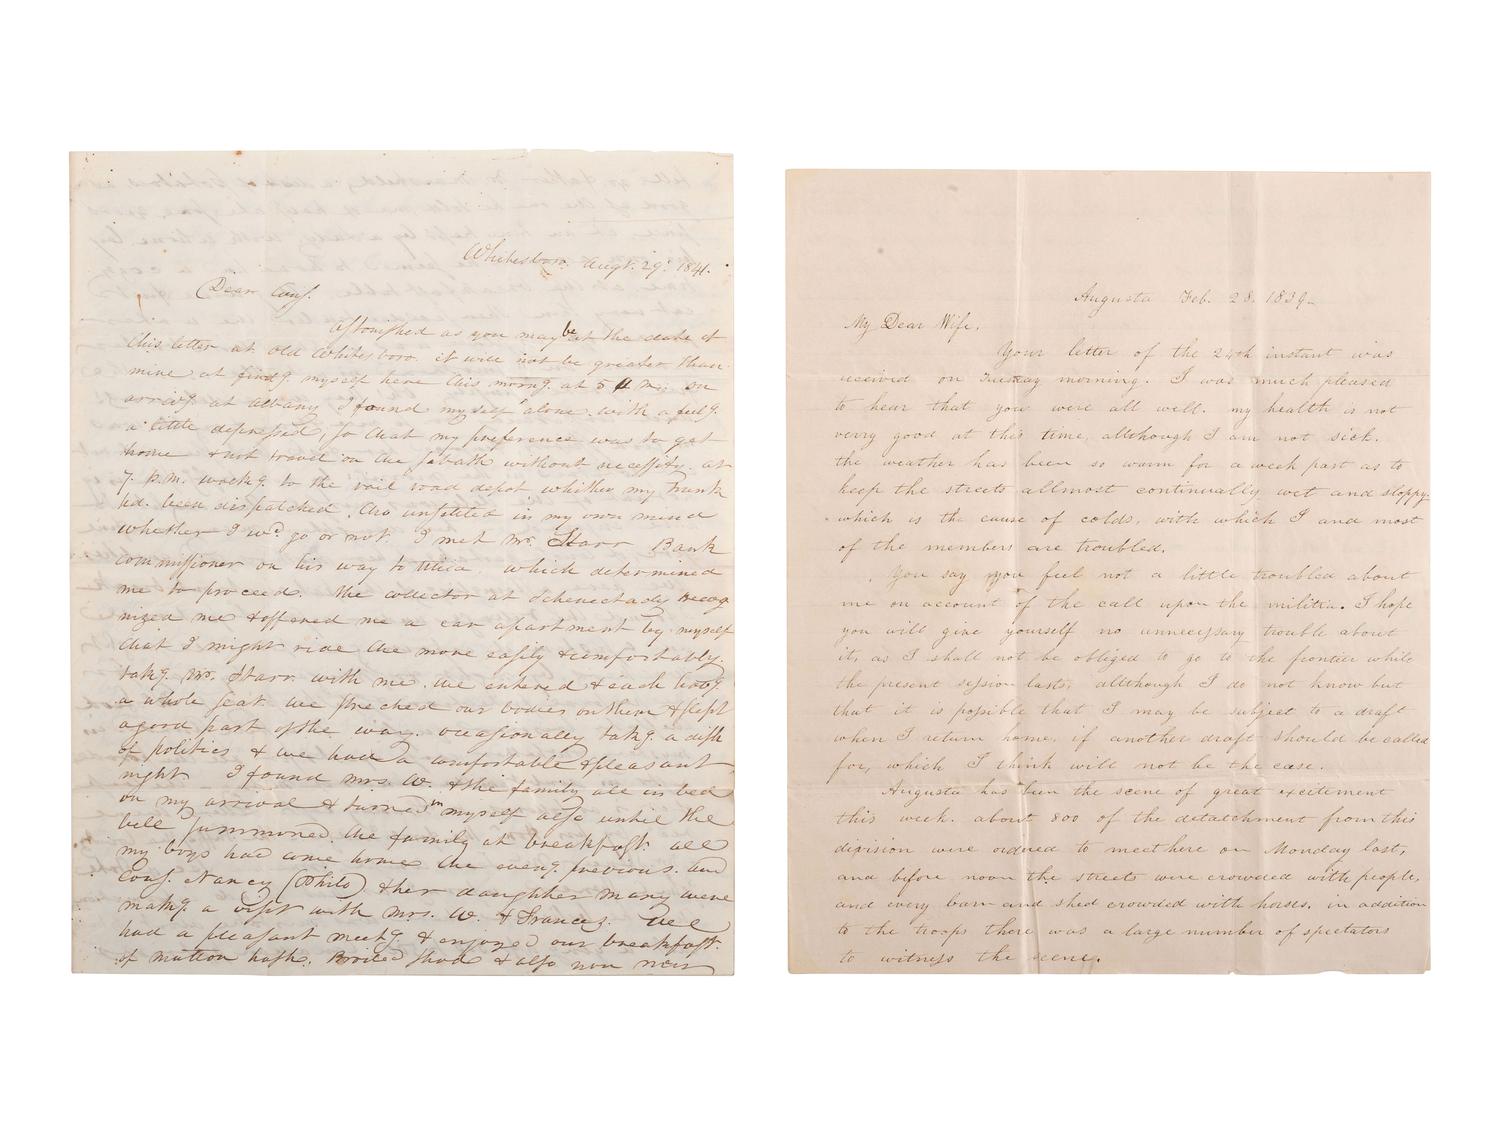 Whitesboro. Augt. 29th 1841.
Dear Cous.
Astonished as you may be at the date of
this letter at old Whitesboro. it will not be greater than
mine at findg. myself here this morng. at 5 A.M. on
arrivg. at Albany I found myself alone. with a feelg.
a little depressed, so that my preference was to get
home & not travel on the sabath without necessity. at
7. p.m. walkg. to the rail road depot whither my trunk
hd. been dispatched. And unsettled in my own mind
whether I wd. go or not. I met Mr. Starr Bank
commissioner on his way to Utica. which determined
me to proceed. The collector at Schenectady recog
nized me & offered me a car apartment by myself
that I might ride the more easily & comfortably.
takg. Mr. Starr with me. we entered & each havg.
a whole seat we streched our bodies on them & slept
a good part of the way. occasionally takg. a dish
of politics & we had a comfortable & pleasant
night I found Mrs. W. & the family all in bed
on my arrival & turned in myself also until the
bell summoned the family at breakfast. all
my boys had come home the eveng. previous. and
Cous. Nancy (Philo) & her daughter Mary were
makg. a visit with Mrs. W. & Frances. We
had a pleasant meetg. & enjoyed our breakfast.
of mutton hash. Broiled shad & also
Augusta Feb. 28. 1839
My Dear Wife,
Your letter of the 24th instant was
received on Tuesday morning. I was much pleased
to hear that you were all well. my health is not
verry good at this time, allthough I am not sick.
the weather has been so warm for a week past as to
keep the streets allmost continually wet and sloppy.
which is the cause of colds, with which I and most
of the members are troubled.
You say you feel not a little troubled about
me on account of the call upon the militia. I hope
you will give yourself no unnecessary trouble about
it, as I shall not be obliged to go to the frontier while
the present session lasts, allthough I do not know but
that it is possible that I may be subject to a draft
when I return home, if another draft should be called
for, which I think will not be the case.
Augusta has been the scene of great excitement
this week. about 800 of the detatchment from this
division were ordred to meet here on Monday last,
and before noon the streets were crowded with people,
and every barn and shed crowded with horses. in addition
to the troops there was a large number of spectators
to witness the scene.